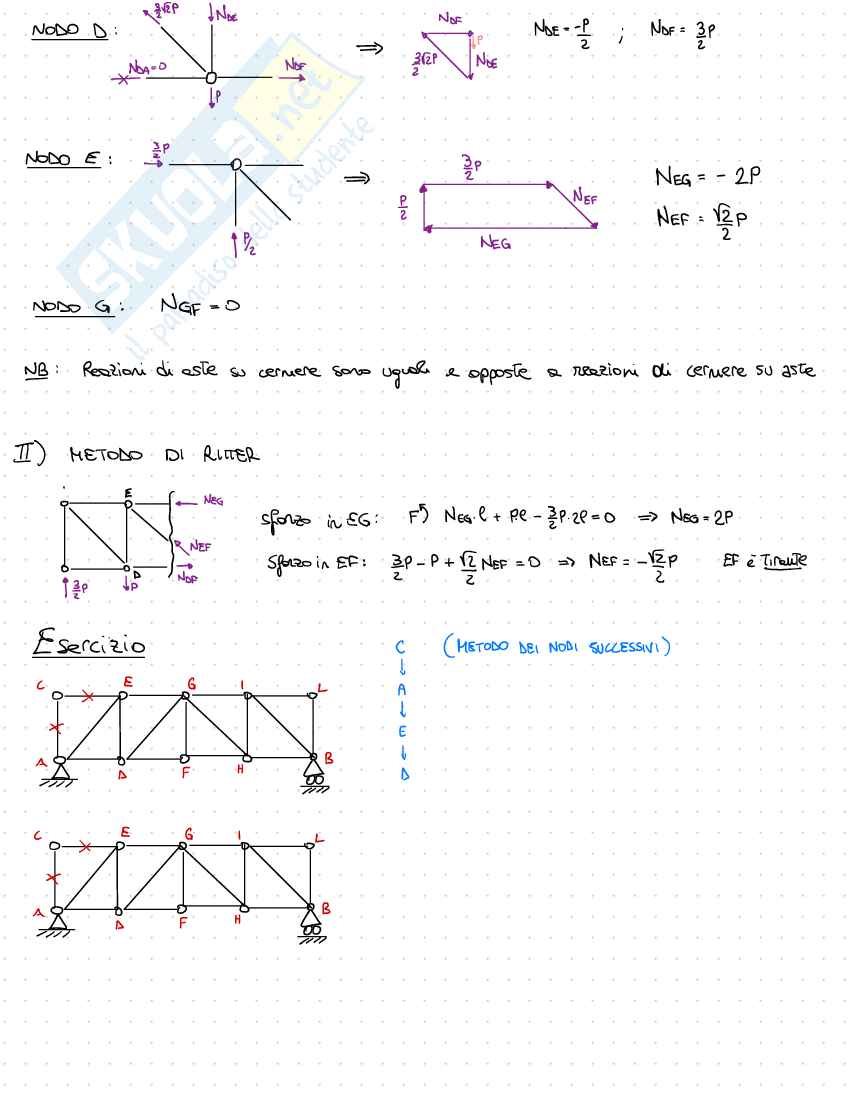 NODO D:
3/2√2P
NDE
NDA=0
NDF
P
⇒
NDF
3/2√2P
P
NDE
NDE = -P/2 ; NDF = 3P/2
SKUOLA.net
il paradiso dello studente
NODO E:
3/2P
P/2
⇒
3/2P
P/2
NEF
NEG
NEG = - 2P
NEF = √2/2 P
NODO G: NGF = 0
NB: Reazioni di aste su cerniere sono uguali e opposte a reazioni di cerniere su aste
II) METODO DI RITTER
E
NEG
NEF
D
NDF
3/2P
P
sforzo in EG: F↰) NEG·l + P·l - 3/2P·2l = 0 ⇒ NEG = 2P
Sforzo in EF: 3/2P - P + √2/2 NEF = 0 ⇒ NEF = -√2/2 P EF è Tirante
Esercizio
C E G I L
A D F H B
C (METODO DEI NODI SUCCESSIVI)
↓
A
↓
E
↓
D
C E G I L
A D F H B